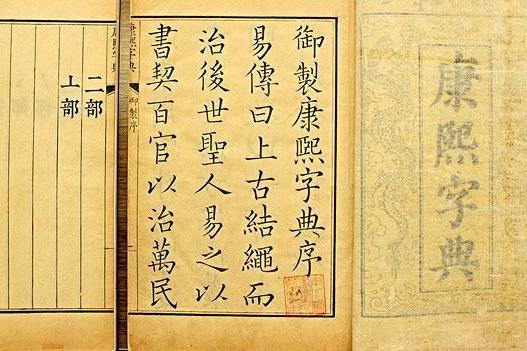 康熙字典
御製康熙字典序
易傳曰上古結繩而
治後世聖人易之以
書契百官以治萬民
康熙字典
御製序
二部
亠部